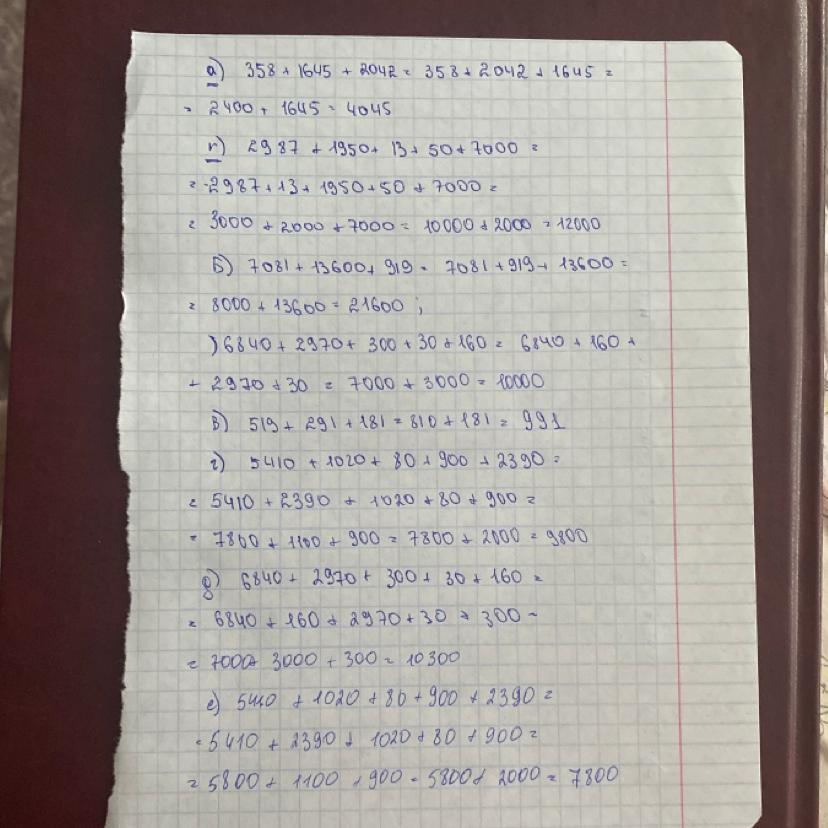 а) 358 + 1645 + 2042 = 358 + 2042 + 1645 =
= 2400 + 1645 = 4045
г) 2987 + 1950 + 13 + 50 + 7000 =
= 2987 + 13 + 1950 + 50 + 7000 =
= 3000 + 2000 + 7000 = 10000 + 2000 = 12000
Б) 7081 + 13600 + 919 = 7081 + 919 + 13600 =
= 8000 + 13600 = 21600 ;
) 6840 + 2970 + 300 + 30 + 160 = 6840 + 160 +
+ 2970 + 30 = 7000 + 3000 = 10000
в) 519 + 291 + 181 = 810 + 181 = 991
г) 5410 + 1020 + 80 + 900 + 2390 =
= 5410 + 2390 + 1020 + 80 + 900 =
= 7800 + 1100 + 900 = 7800 + 2000 = 9800
д) 6840 + 2970 + 300 + 30 + 160 =
= 6840 + 160 + 2970 + 30 + 300 =
= 7000 + 3000 + 300 = 10300
е) 5410 + 1020 + 80 + 900 + 2390 =
= 5410 + 2390 + 1020 + 80 + 900 =
= 5800 + 1100 + 900 = 5800 + 2000 = 7800